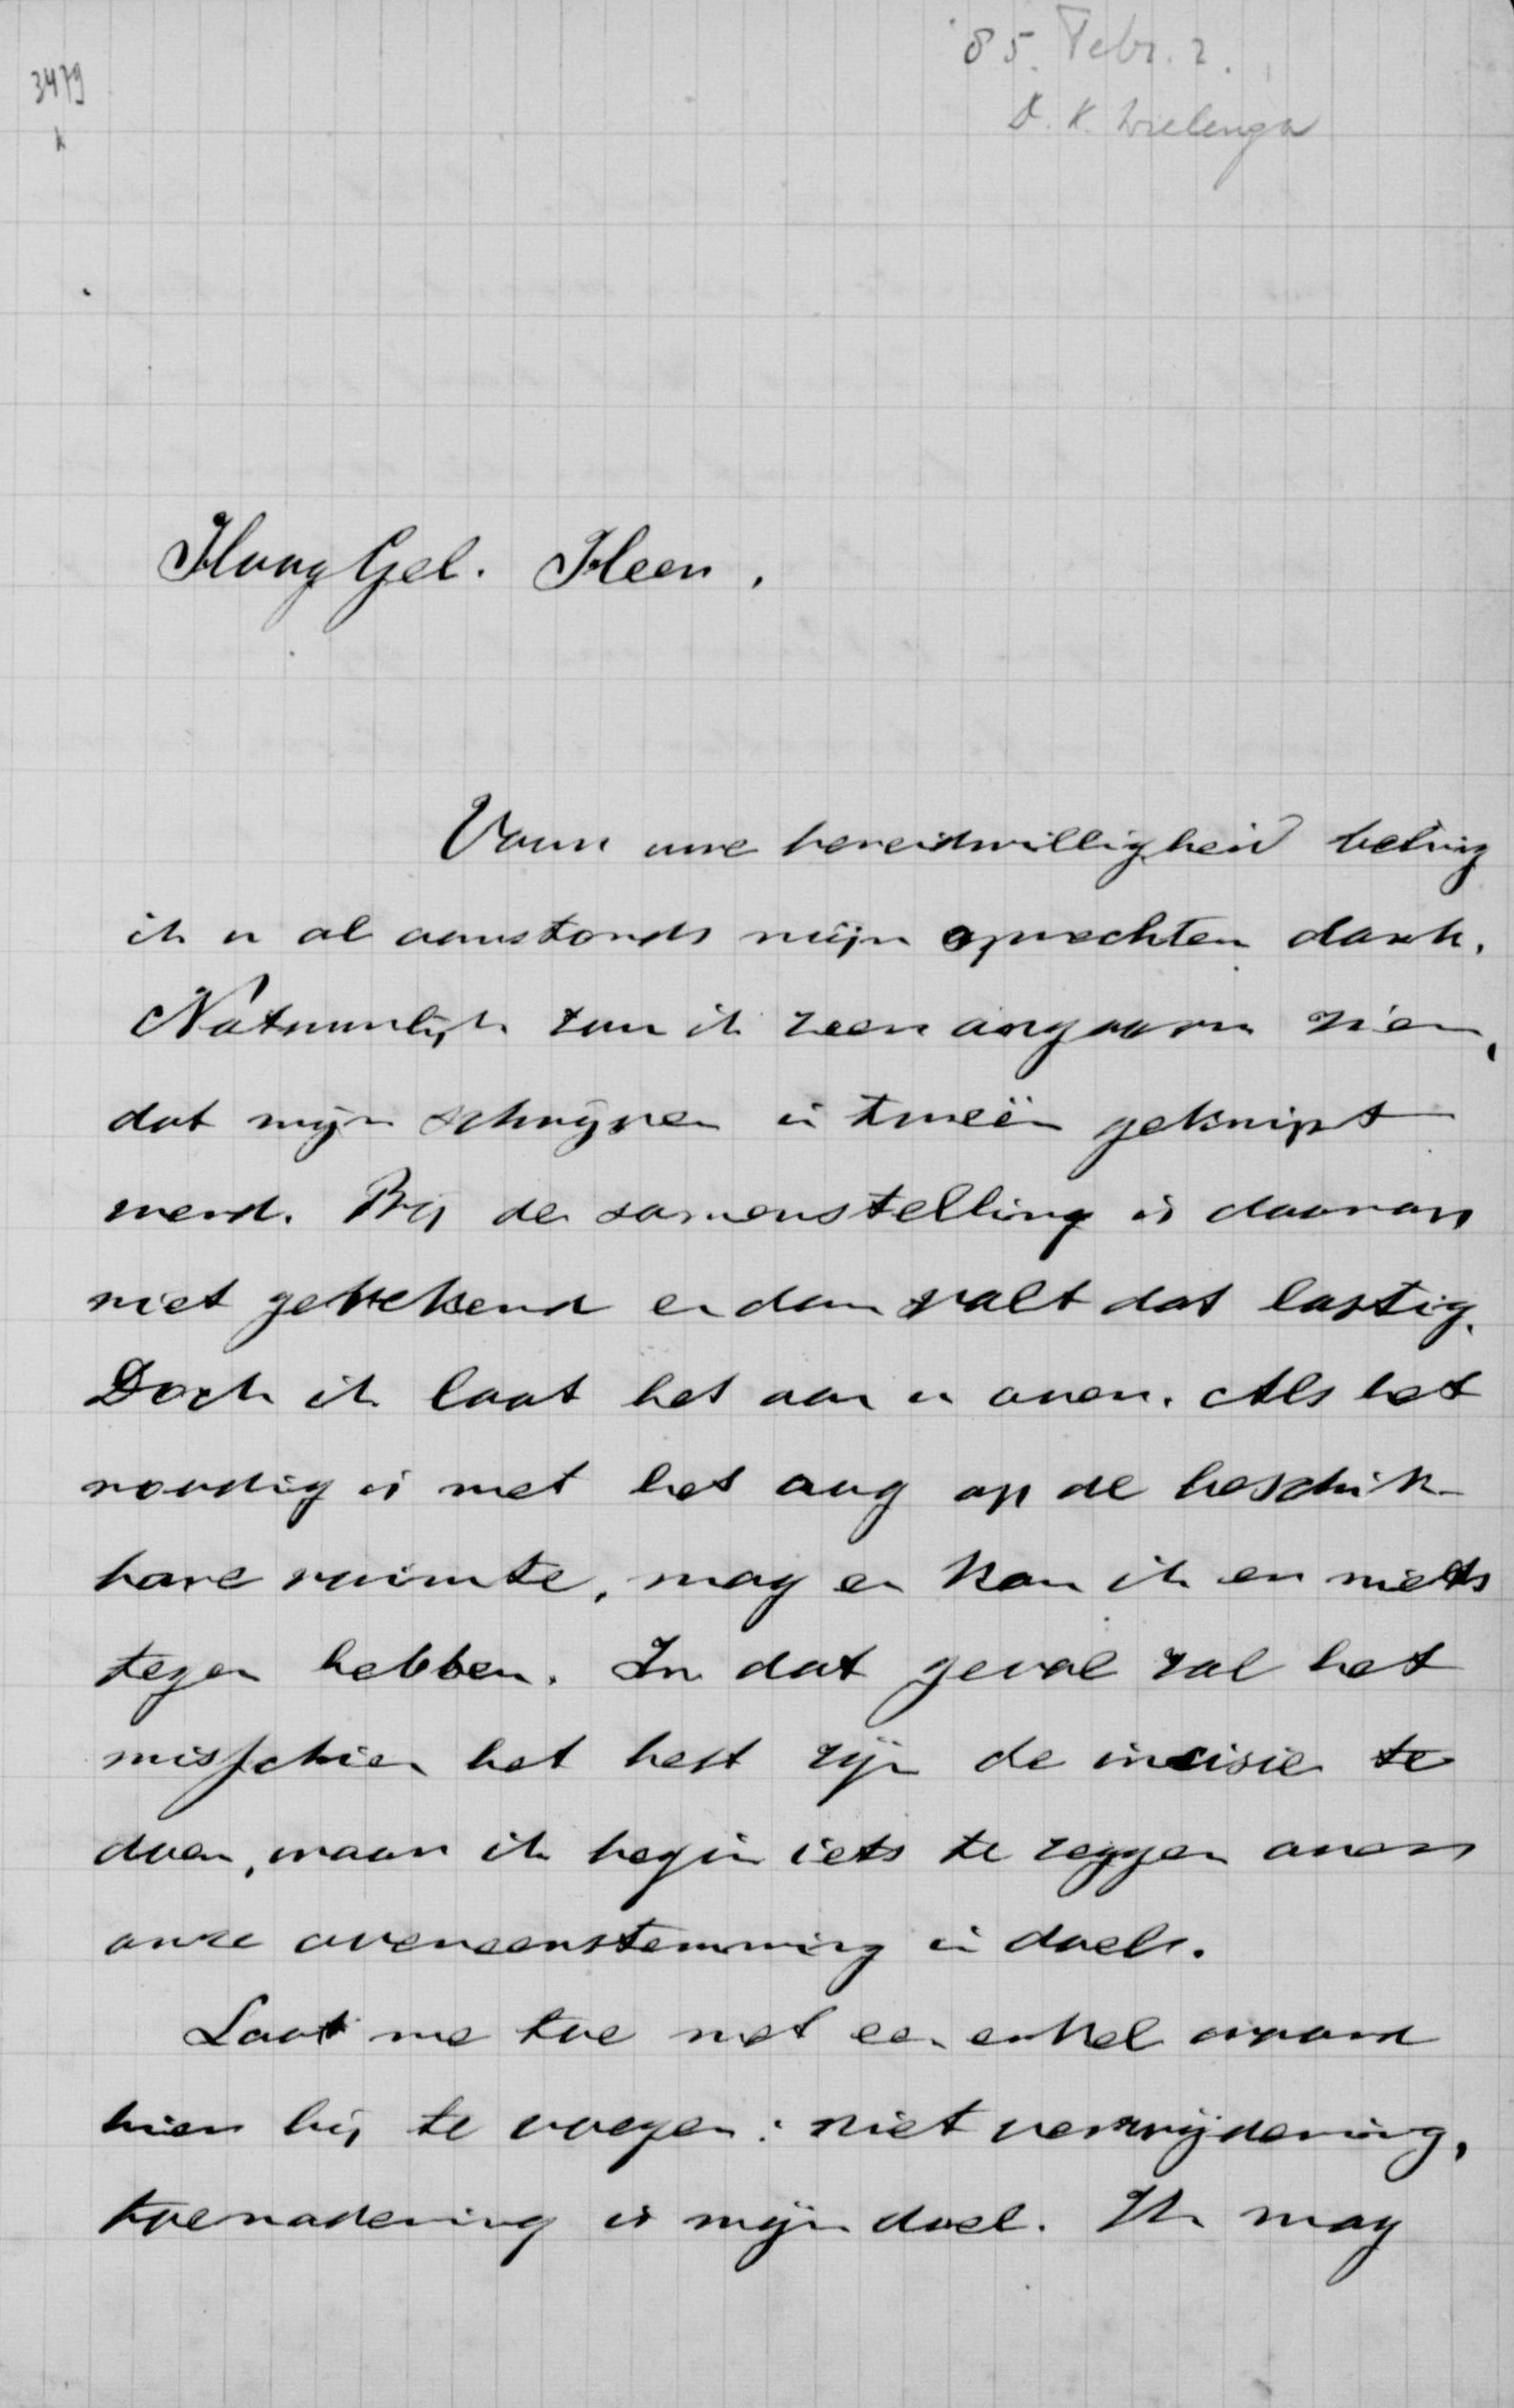 '85. Febr. 2.
3479
D. K. Wielenga
HoogGel. Heer,
Voor uwe bereidwilligheid betuig
ik u al aanstonds mijn oprechten dank.
Natuurlijk zou ik zeer ongaarn zien,
dat mijn schrijven in tweeën geknipt
werd. Bij de samenstelling is daarop
niet gerekend en dan valt dat lastig.
Doch ik laat het aan u over. Als het
noodig is met het oog op de beschik-
bare ruimte, mag en kan ik er niets
tegen hebben. In dat geval zal het
misschien het best zijn de incisie te
doen, waar ik begin iets te zeggen over
onze overeenstemming in doel.
Laat me toe met een enkel woord
hier bij te voegen: niet verwijdering,
toenadering is mijn doel. Ik mag